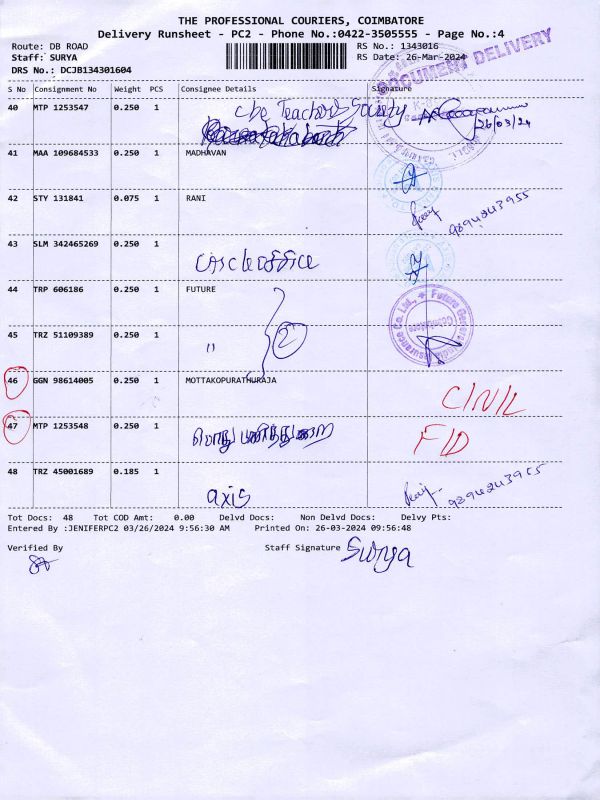 THE PROFESSIONAL COURIERS, COIMBATORE
Delivery Runsheet - PC2 - Phone No.:0422-3505555 - Page No.:4
Route: DB ROAD RS No.: 1343016
Staff: SURYA RS Date: 26-Mar-2024
DRS No.: DCJB134301604
DOCUMENT DELIVERY
S No Consignment No Weight PCS Consignee Details Signature
40 MTP 1253547 0.250 1 cbe Teachers Society
26/03/24
41 MAA 109684533 0.250 1 MADHAVAN
42 STY 131841 0.075 1 RANI
9894243955
43 SLM 342465269 0.250 1
circle office
44 TRP 606186 0.250 1 FUTURE
Future Generali India Insurance Co. Ltd.,
Coimbatore
45 TRZ 51109389 0.250 1 " 2
46 GGN 98614005 0.250 1 MOTTAKOPURATHURAJA C/N/L
47 MTP 1253548 0.250 1 பொது பணித்துறை F/D
48 TRZ 45001689 0.185 1 axis 9894243955
Tot Docs: 48 Tot COD Amt: 0.00 Delvd Docs: Non Delvd Docs: Delvy Pts:
Entered By :JENIFERPC2 03/26/2024 9:56:30 AM Printed On: 26-03-2024 09:56:48
Verified By Staff Signature Surya